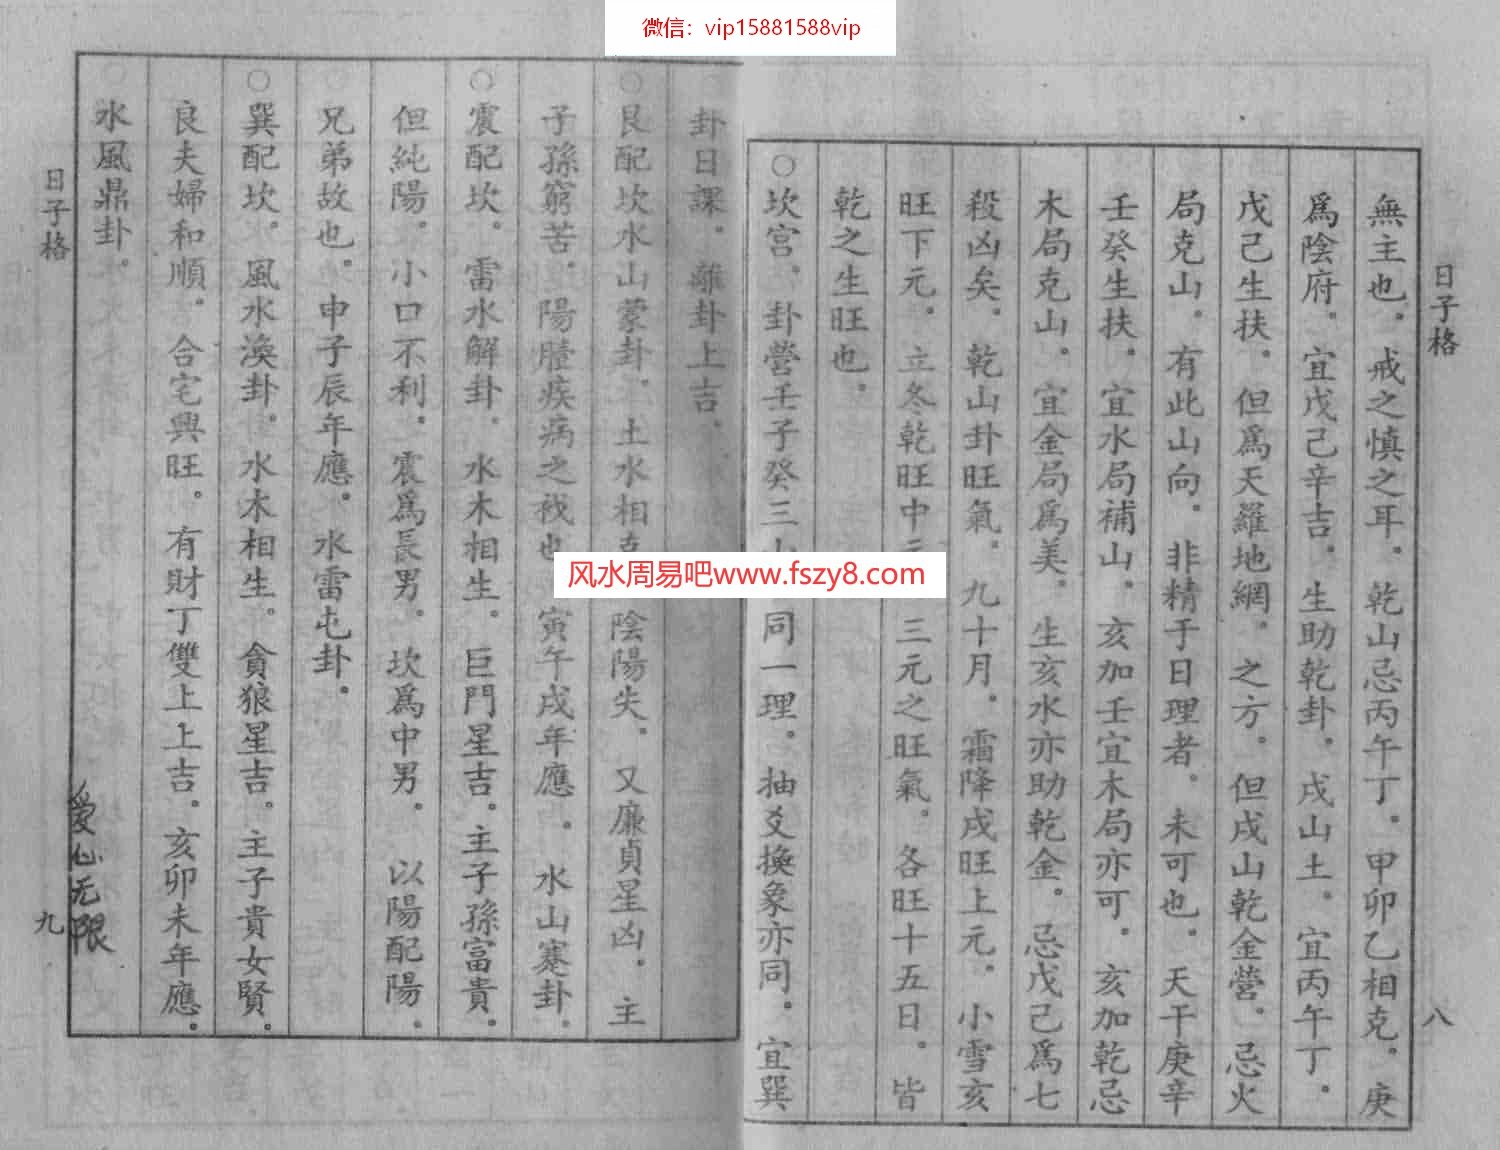 微信：vip15881588vip
日子格
八
無主也。戒之慎之耳。乾山忌丙午丁。甲卯乙相克。庚
爲陰府。宜戊己辛吉。生助乾卦。戌山土。宜丙午丁。
戊己生扶。但爲天羅地網。之方。但戌山乾金營。忌火
局克山。有此山向。非精于日理者。未可也。天干庚辛
壬癸生扶。宜水局補山。亥加壬宜木局亦可。亥加乾忌
木局克山。宜金局爲美。生亥水亦助乾金。忌戊己爲七
殺凶矣。乾山卦旺氣。九十月。霜降戌旺上元。小雪亥
旺下元。立冬乾旺中三元之旺氣。各旺十五日。皆
乾之生旺也。
○坎宫。卦營壬子癸三同一理。抽爻換象亦同。宜巽
风水周易吧www.fszy8.com
卦日課。離卦上吉。
○艮配坎水山蒙卦。土水相克陰陽失。又廉貞星凶。主
子孫窮苦。陽腫疾病之我也寅午戌年應。水山蹇卦。
○震配坎。雷水解卦。水木相生。巨門星吉。主子孫富貴。
但純陽。小口不利。震爲長男。坎爲中男。以陽配陽。
兄弟故也。申子辰年應。水雷屯卦。
○巽配坎。風水渙卦。水木相生。貪狼星吉。主子貴女賢。
良夫婦和順。合宅興旺。有財丁雙上上吉。亥卯未年應。
水風鼎卦。
日子格
九
爱心无限